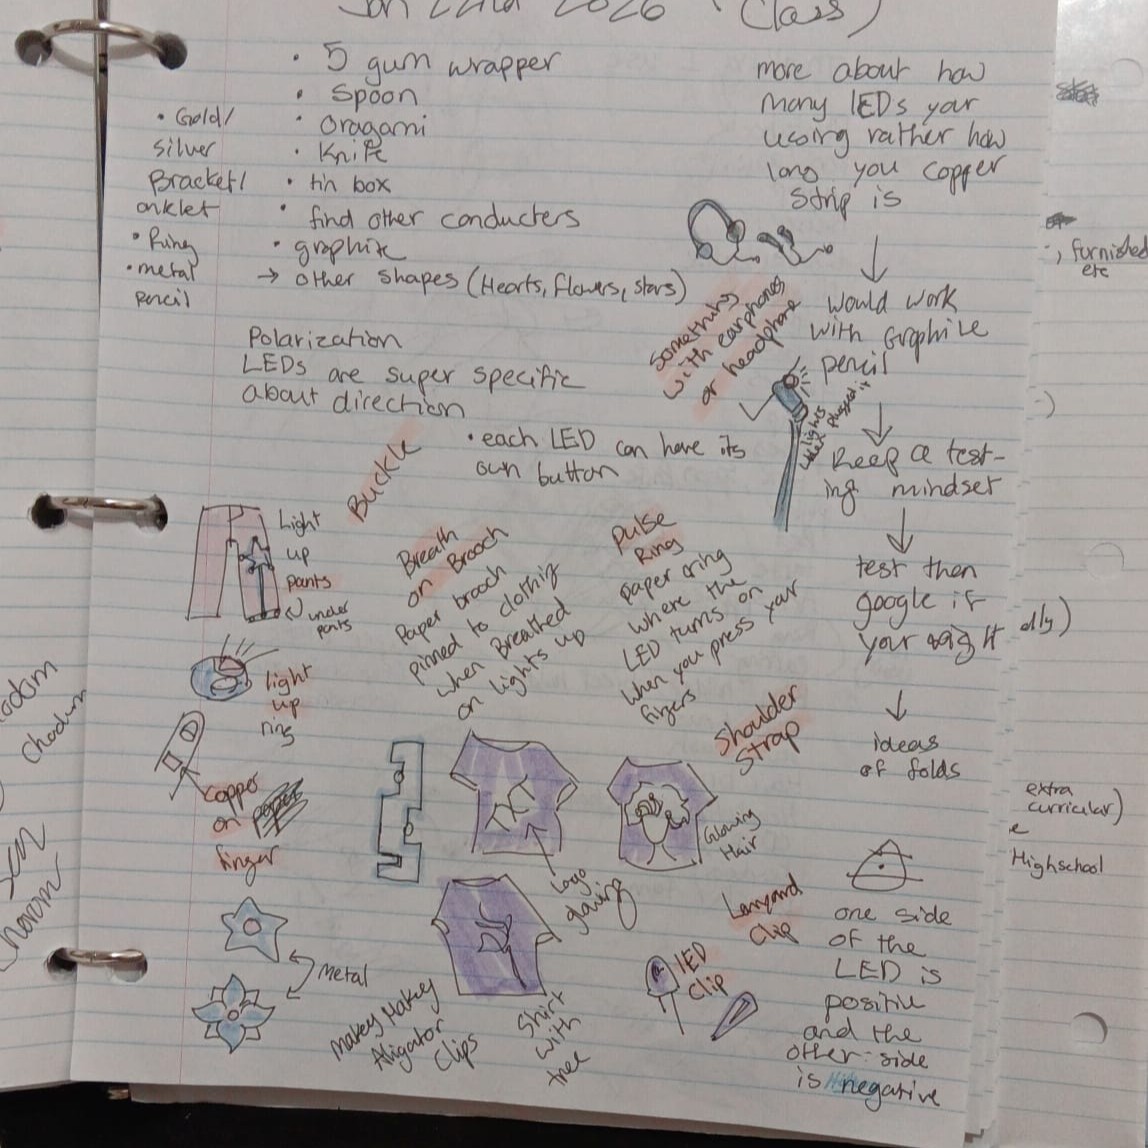 Jan 22nd 2026 (Class)
• 5 gum wrapper
• Spoon
• Oragami
• Knife
• tin box
• find other conducters
• graphite
→ other shapes (Hearts, flowers, stars)
• Gold/
Silver
Bracket/
anklet
• Ring
• metal
pencil
Polarization
LEDs are super specific
about direction
• each LED can have its
own button
more about how
many LEDs your
using rather how
long you copper
strip is
would work
with Graphite
pencil
Keep a test-
ing mindset
test then
google if
your right
ideas
of folds
one side
of the
LED is
positive
and the
other side
is negative
Something
with earphones
or headphone
lights
when plugged in
Buckle
Light
up
pants
under
pants
light
up
ring
copper
on
finger
Metal
Breath
on Brooch
Paper brooch
pinned to clothing
when Breathed
on lights up
Pulse
Ring
paper ring
where the
LED turns on
when you press your
fingers
Shoulder
Strap
Glowing
Hair
Logo
glowing
Lanyard
Clip
LED
Clip
Shirt
with
tree
Makey Makey
Aligator
Clips
, furnished
etc
:-)
dly)
extra
curricular)
e
Highschool